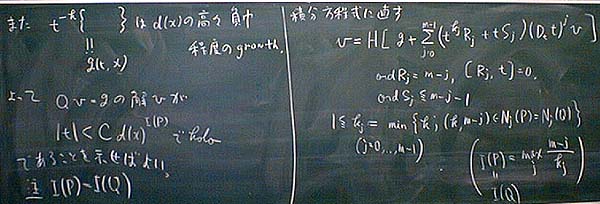 また t^{-k}{ } は d(x) の高々負巾
||
g(t, x)
程度の growth.
よって Qv = g の解 v が
|t| < C d(x)^{I(P)} で holo
であることを示せばよい.
注 I(P) = I(Q)
積分方程式に直す
v = H[ g + Σ_{j=0}^{m-1} (t^{k_j} R_j + t S_j)(D_t t)^j v ]
ord R_j = m-j, [R_j, t] = 0.
ord S_j ≦ m-j-1
1 ≦ k_j = min{k; (k, m-j) ∈ N_j(P) = N_j(Q)}
(j=0,..., m-1)
( I(P) = max_j (m-j)/k_j )
||
I(Q)